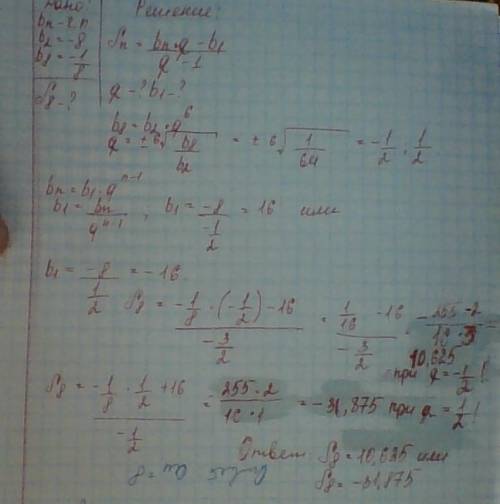 Дано:
bn - г.п
b2 = -8
b8 = -1/8
S8 - ?
Решение:
Sn = (bn·q - b1)/(q - 1)
q - ? b1 - ?
b8 = b2·q^6
q = ± 6√(b8/b2) = ± 6√(1/64) = -1/2, 1/2
bn = b1·q^(n-1)
b1 = bn/q^(n-1) ; b1 = -8/(-1/2) = 16 или
b1 = -8/(1/2) = -16
S8 = (-1/8·(-1/2) - 16)/(-3/2) = (1/16 - 16)/(-3/2) = -255·2/16·3 =
10,625
при q = -1/2!
S8 = (-1/8·1/2 + 16)/(-1/2) = 255·2/16·1 = -31,875 при q = 1/2!
Ответ: S8 = 10,625 или
S8 = -31,875